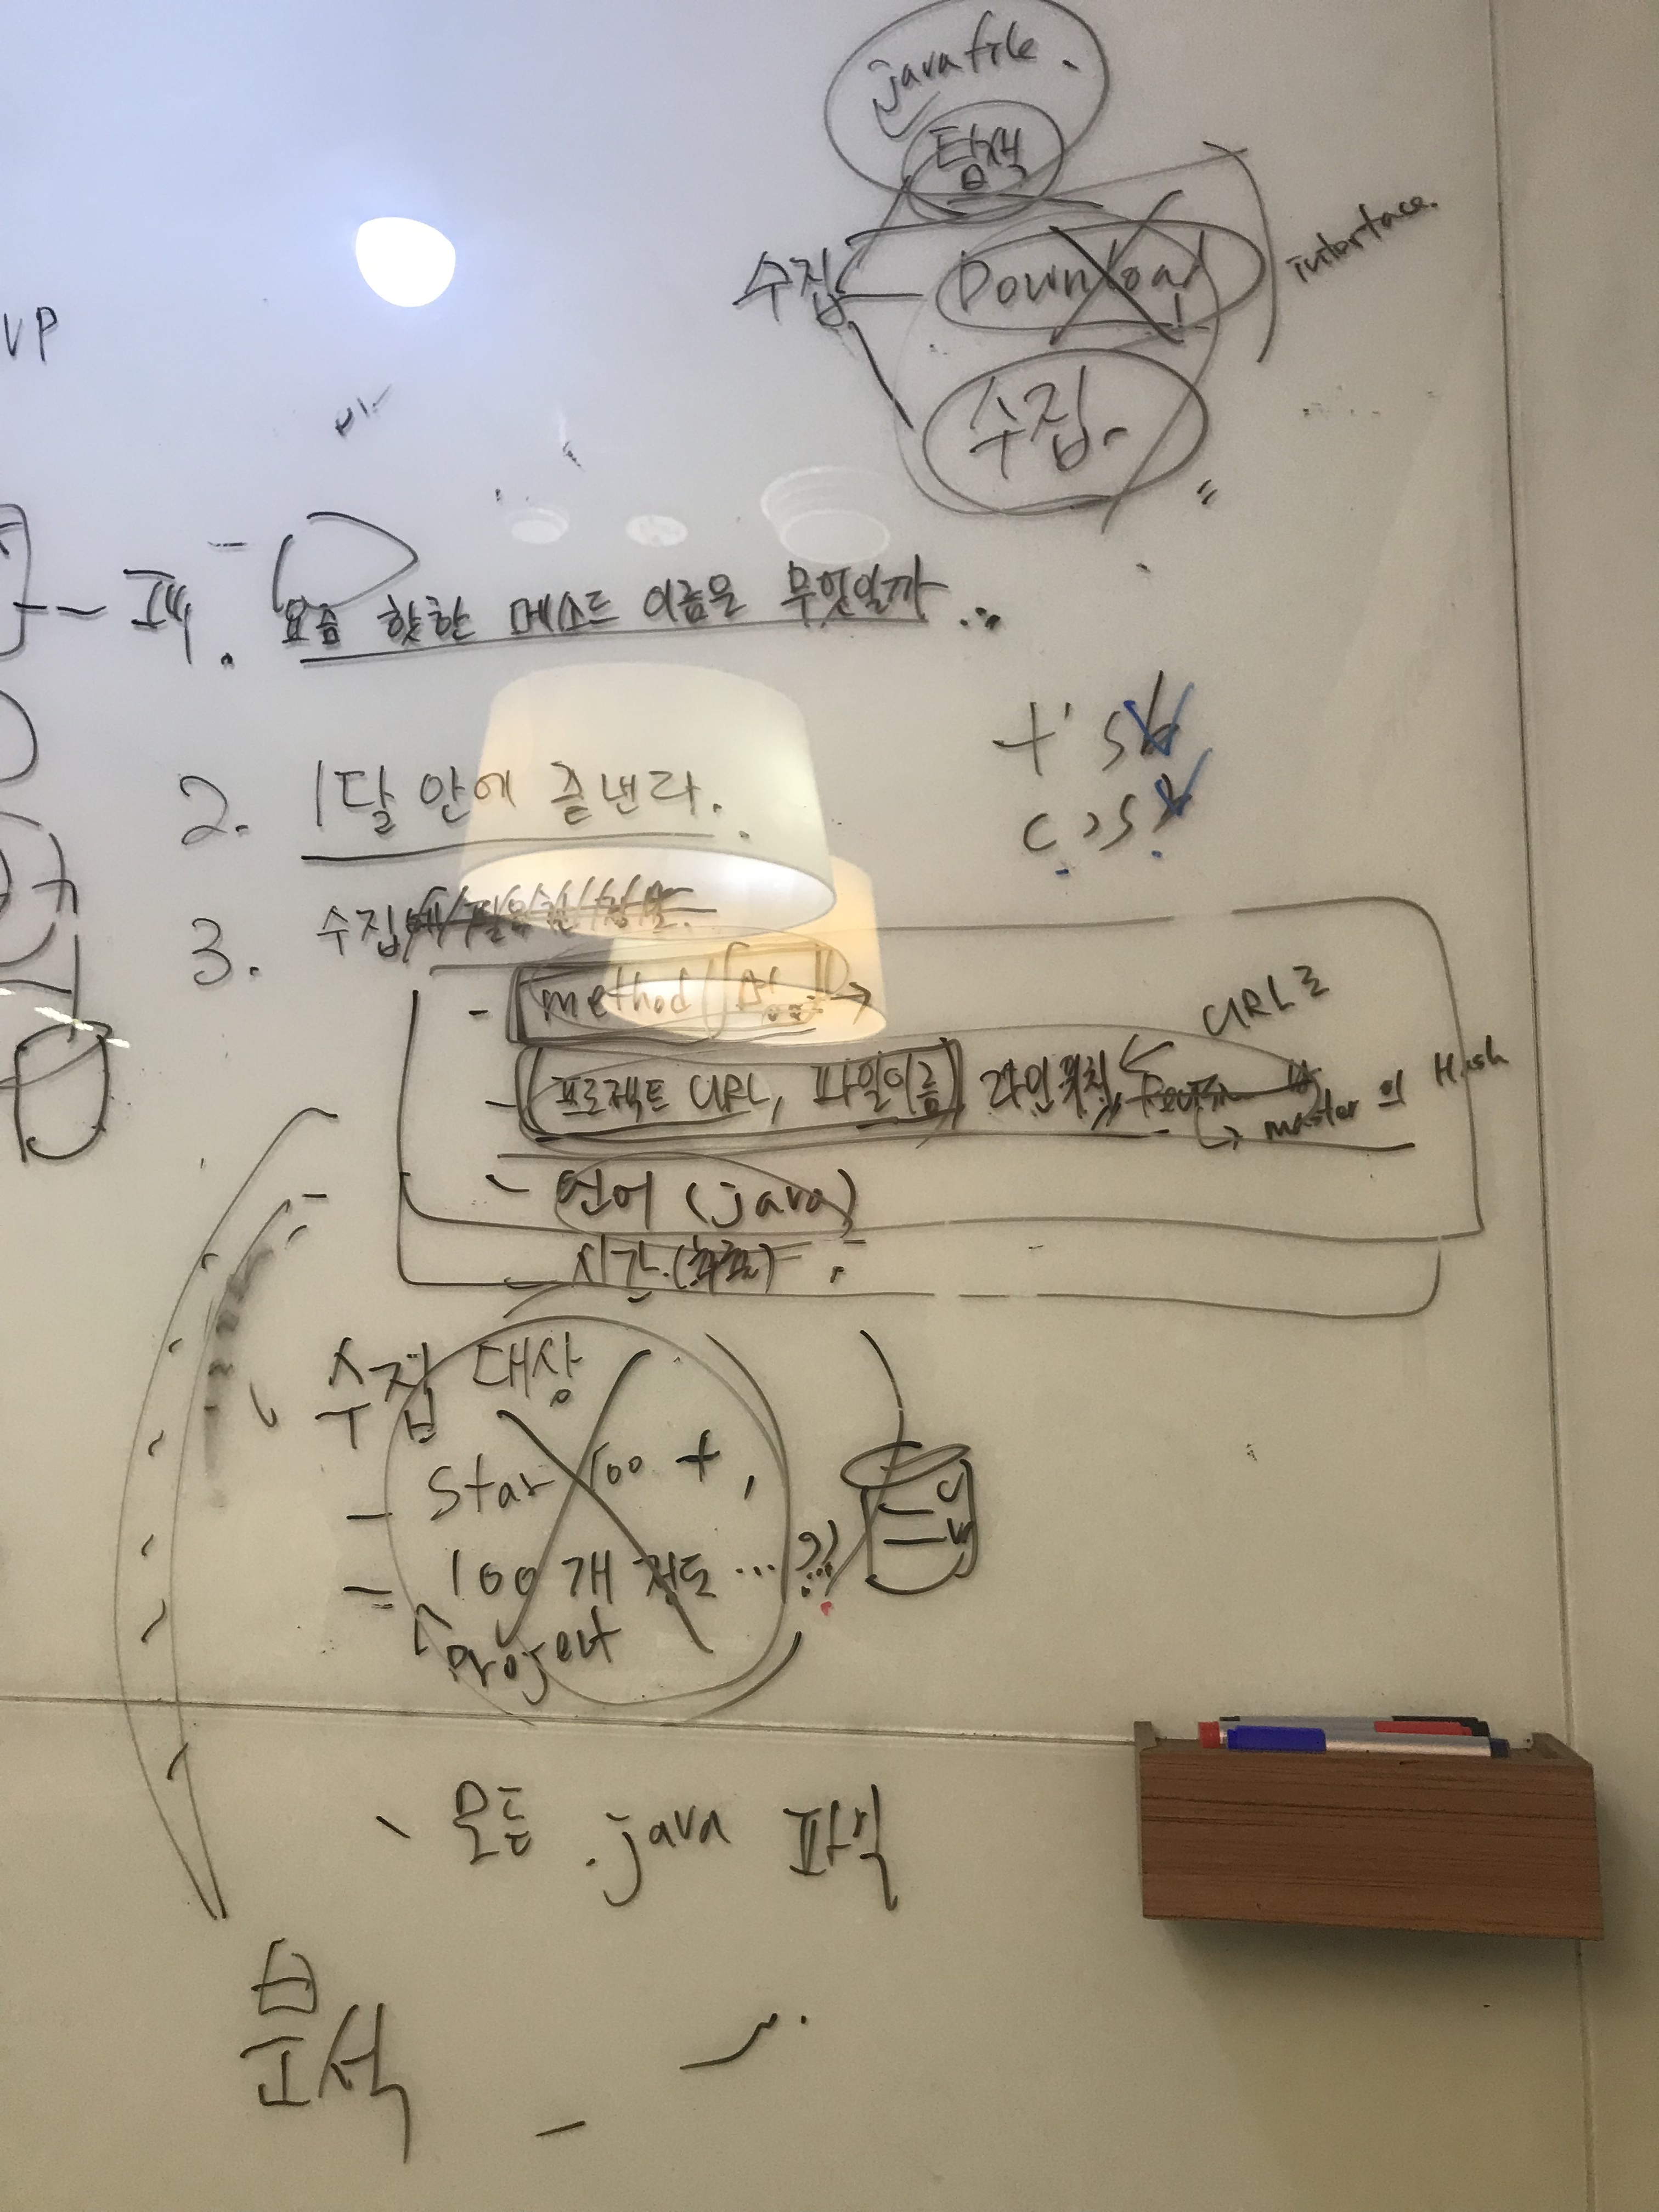 java file.
탐색
수집
Download
interface.
수집.
VP
요즘 핫한 메소드 이름은 무엇일까
2. 1달 안에 끝낸다.
3. 수집에 필요한
- method
URL로
- 프로젝트 URL, 파일이름 라인위치,
master의 Hash
- 언어 (java)
시간.
수집 대상
- Star 100 +,
- 100개 정도 ... ?
Project
모든 .java 파일
분석